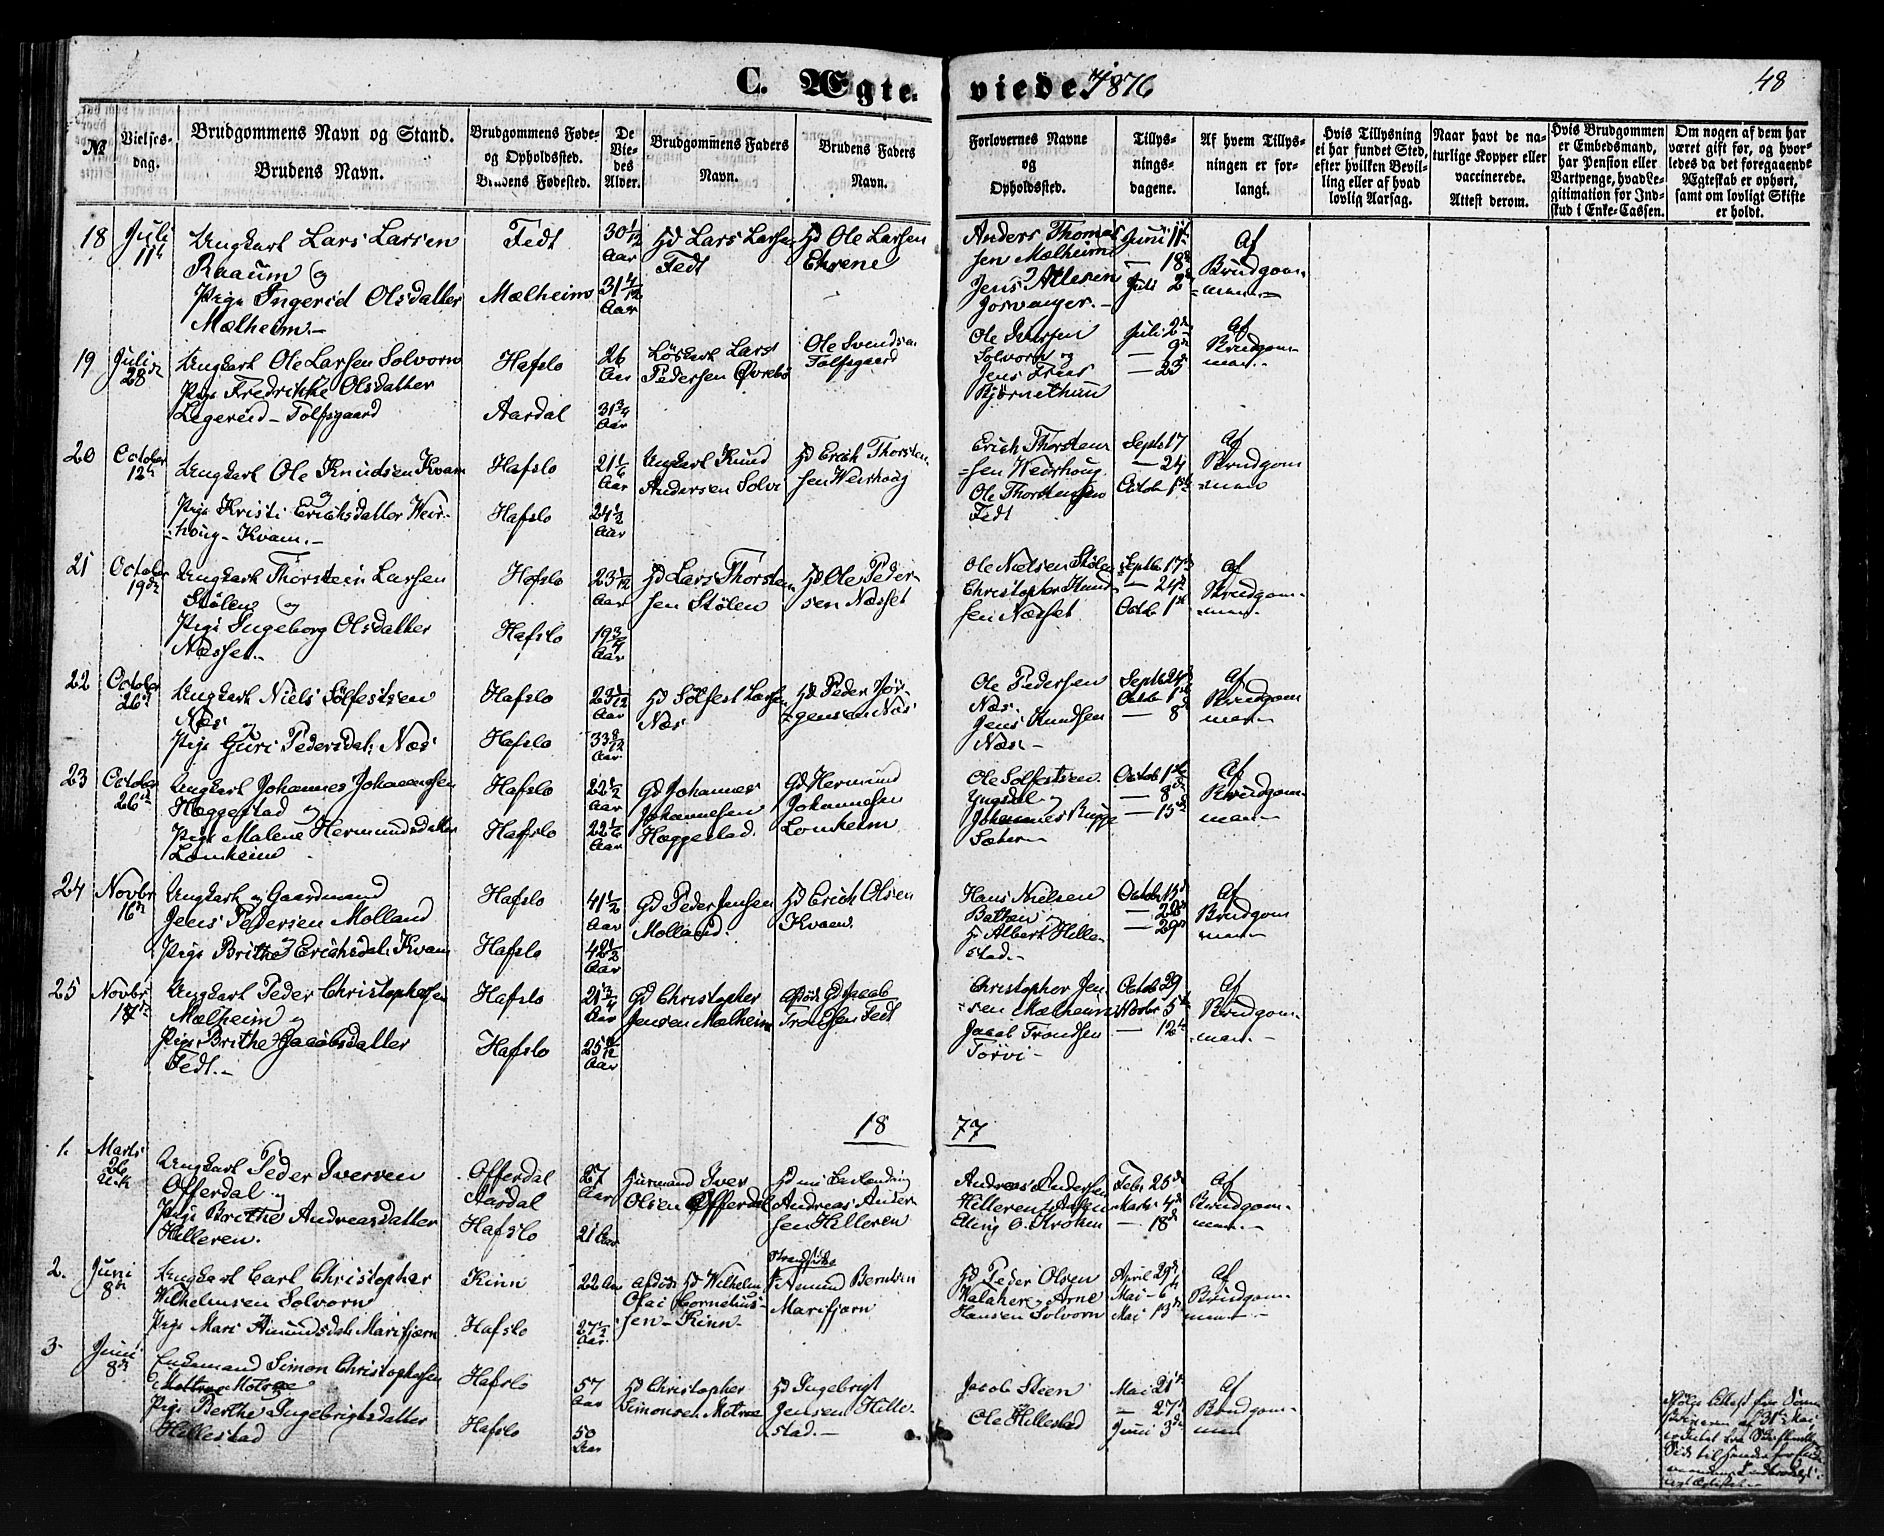 C. Ægte-viede. 1876
48
No
Vielses-
dag.
Brudgommens Navn og Stand.
Brudens Navn.
Brudgommens Føde-
og Opholdssted.
Brudens Fødested.
De
Vie-
des
Alder.
Brudgommens Faders
Navn.
Brudens Faders
Navn.
Forlovernes Navne
og
Opholdssted.
Tillys-
nings-
dagene.
Af hvem Tillys-
ningen er for-
langt.
Hvis Tillysning
ei har fundet Sted,
efter hvilken Bevil-
ling eller af hvad
lovlig Aarsag.
Naar havt de na-
turlige Kopper eller
vaccinerede.
Attest derom.
Hvis Brudgommen
er Embedsmand,
har Pension eller
Vartpenge, hvad Le-
gitimation for Ind-
skud i Enke-Cassen.
Om nogen af dem har
været gift før, og hvor-
ledes da det foregaaende
Ægteskab er ophørt,
samt om lovligt Skifte
er holdt.
18 Juli 11te
Ungkarl Lars Larsen
Raaum og
Pige Ingerid Olsdatter
Mælheim.-
Fedt
Mælheim
30 1/12 Aar
31 4/12 Aar
Gd Lars Larsen
Fedt
Gd Ole Larsen
Ehrene
Anders Thomas
sen Mælheim
Jens Attesen
Josvanger.-
Juni 11te
— 18de
Juli 2den
Af
Brudgom-
men.-
19 Juli 28de
Ungkarl Ole Larsen Solvorn
Pige Fredrikke Olsdatter
Legereid - Tolfsgaard
Hafslo
Aardal
26 Aar
31 3/4 Aar
Løskarl Lars
Pedersen Øvrebø
Ole Svendsen
Tolfsgaard
Ole Iversen
Solvorn og
Jens Truls
Bjørnethun
Juli 2den
— 9de
— 23
Af
Brudgom-
men.-
20 October 12te
Ungkarl Ole Knudsen Kvam
og
Pige Kristi Erichsdatter Weir-
houg - Kvam.-
Hafslo
Hafslo
21 1/6 Aar
24 1/2 Aar
Ungkarl Knud
Andersen Solvi
Gd Erich Thorsten-
sen Weirhoug
Erich Thorsten-
sen Weirhoug.
Ole Thorstensen
Fedt
Septb 17
— 24
Octob 1ste
Af
Brudgom-
men
21 October 19de
Ungkarl Thorstein Larsen
Stølen og
Pige Ingeborg Olsdatter
Næsset.-
Hafslo
Hafslo
23 5/12 Aar
19 3/4 Aar
Gd Lars Thorsten-
sen Stølen
Gd Ole Peder-
sen Næsset
Ole Nielsen Stølen
Christopher Knud
sen Næsset
Septb 17de
— 24de
Octob 1ste
Af
Brudgom-
men.
22 October 26de
Ungkarl Niels Sølfestsen
Næs og
Pige Guri Pedersdat. Næs
Hafslo
Hafslo
23 5/12 Aar
33 8/12 Aar
Gd Sølfest Larsen
Næs
Gd Peder Jør-
gensen Næs
Ole Pedersen
Næs.
Jens Knudsen
Næs.-
Septb 24de
Octob 1ste
— 8de
Af
Brudgom
men.
23 October 26de
Ungkarl Johannes Johannesen
Hæggestad og
Pige Malene Hermundsdatter
Lomheim
Hafslo
Hafslo
22 1/2 Aar
22 1/6 Aar
Gd Johannes
Johannesen
Hæggestad.
Gd Hermund
Johannesen
Lomheim
Ole Solfestsen
Yngsdal og
Johannes Ruppe
Sæter
Octob 1ste
— 8de
— 15de
Af
Brudgom-
men.
24 Novbr 16de
Ungkarl og Gaardmand
Jens Pedersen Molland
Pige Brithe Erichsdat. Kvam
Hafslo
Hafslo
41 1/2 Aar
42 1/2 Aar
Gd Peder Jensen
Molland.
Gd Erich Olsen
Kvam
Hans Nielsen
Batten og
Albert Hille-
stad.-
Octobr 15de
— 22de
— 29de
Af
Brudgom
men.
25 Novbr 17de
Ungkarl Peder Christophersen
Mælheim og
Pige Brithe Jacobsdatter
Fedt.-
Hafslo
Hafslo
21 3/4 Aar
25 Aar
Gd Christopher
Jensen Mælheim
Afdøde Gd Jacob
Trondsen Fedt
Christopher Jen
sen Mælheim
Jacob Trondsen
Torvi -
Octob 29
Novbr 5te
— 12te
Af
Brudgom-
men.-
18 77
1. Marts 26
Ungkarl Peder Iversen
Offerdal og
Pige Brithe Andreasdatter
Hilleren.
Offerdal
Aardal
Hafslo
27 Aar
21 Aar
Huusmand Iver
Olsen Offerdal
Andreas Ander-
sen Hilleren
Andreas Andersen
Hilleren
Elling O. Kroken
Febr 25de
Marts 4de
— 18de
Af
Brudgom-
men.-
2. Juni 8de
Ungkarl Carl Christopher
Wilhelmsen Solvorn
Pige Mari Amundsdat. Marifjæren
Kinn
Hafslo
22 Aar
27 1/2 Aar
Afdøde Gd Wilhelm
Olai Cornelius-
sen - Kinn
Strandsidder
Amund Berntsen
Marifjæren
Gd Peder Olsen
Walaker Arne
Hansen Solvorn
April 29de
Mai - 6te
Mai 13de
Af
Brudgom-
men.-
3. Juni 8de
Enkemand Simon Christophersen
Molræ
Pige Berthe Ingebrigtsdatter
Hillestad
Hafslo
Hafslo
57 Aar
50 Aar
Gd Christopher
Simonsen Molræ
Gd Ingebrigt
Jensen Hille-
stad.-
Jacob Steen
Ole Hillestad
Mai 21de
— 27de
Juni 3de
Af
Brudgom-
men